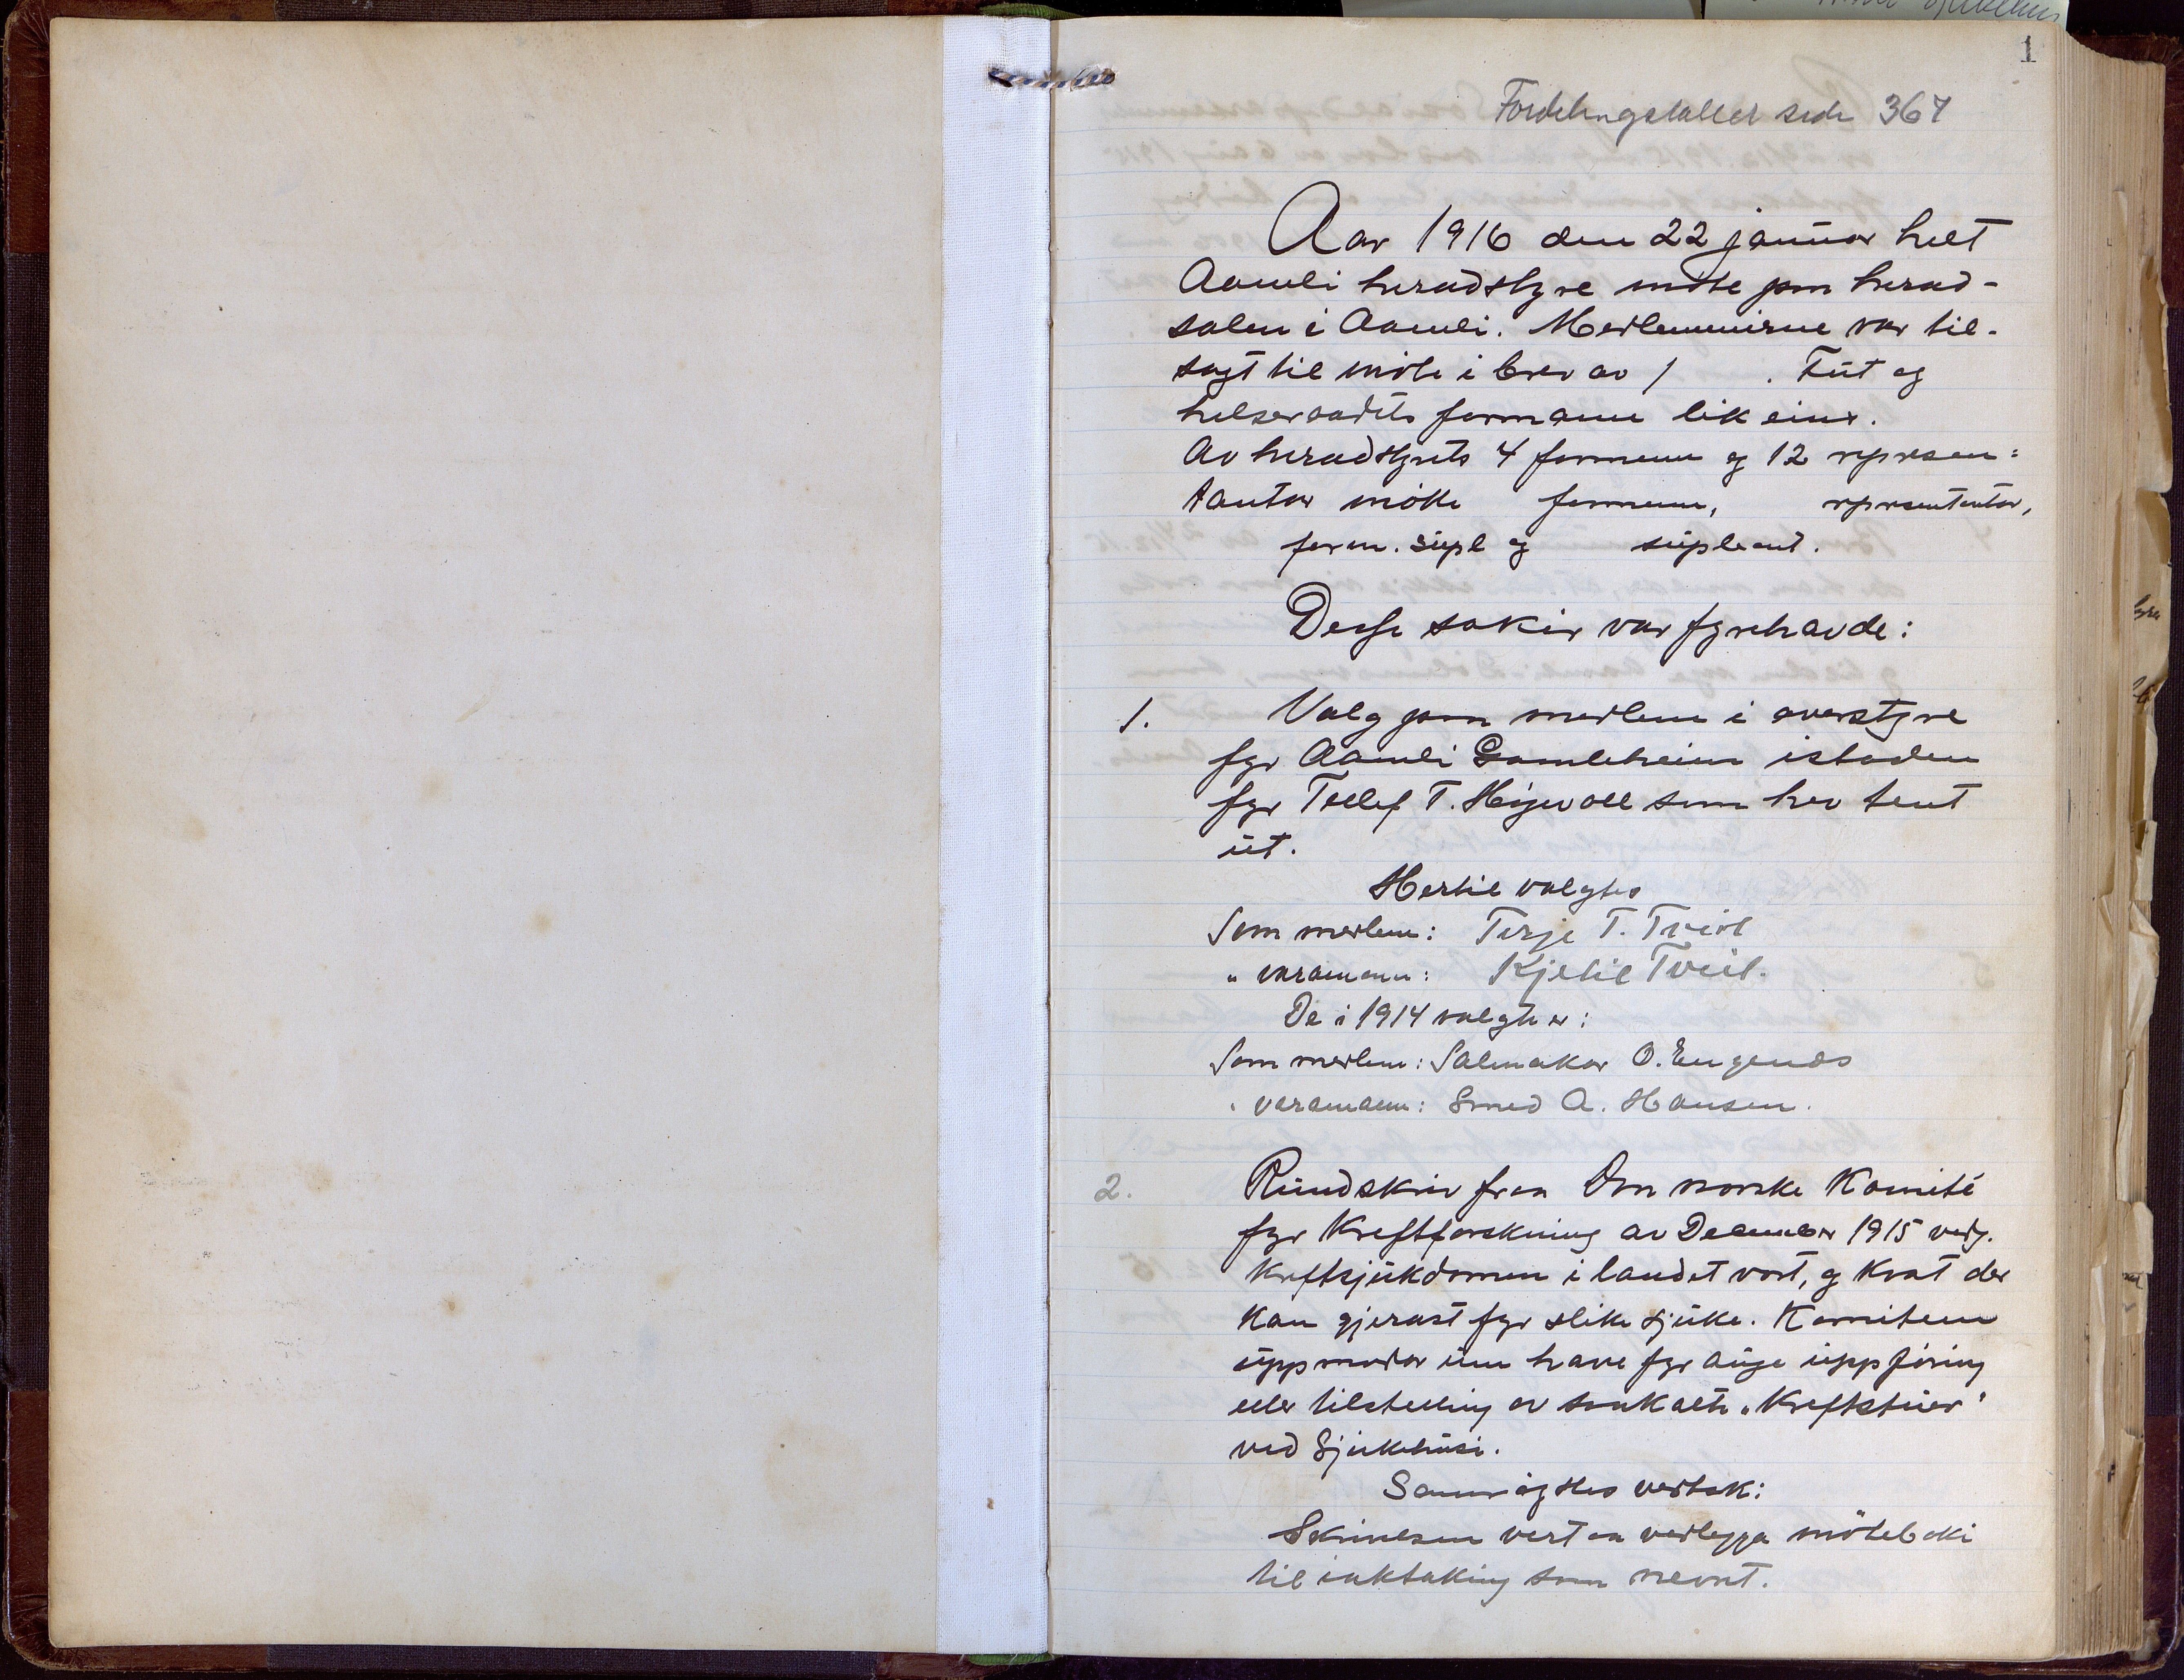 1
Fordelingstallet side 367
Aar 1916 den 22 januar helt
Aamli heradstyre möte paa herad-
salen i Aamli. Medlemmirne var til-
sagt til möte i brev av / . Fut og
helseraadets formann lik eins.
Av heradstyrets 4 formenn og 12 represen=
tantar mötte formenn, representantar,
form. supl og supleant.
Desse sakir var fyrehavde:
1. Valg paa medlem i overstyre
fyr Aamli Gamleheim istaden
fyr Tellef T. Högevoll som hev tent
ut.
Hertil valgtes
Som medlem: Terje T. Tveit
" varamann: Kjetil Tveit.
De i 1914 valgte er:
Som medlem: Salmakar O. Engenes
" varamann: Smed A. Hansen.
2. Rundskriv fraa Den norske Komité
fyr Kreftforskning av December 1915 vedg.
Kreftsjukdomen i landet vort, og kvat der
kan gjerast fyr slike sjuke. Komiteen
uppmodar um have fyr auge uppföring
eller tilstelling av saakalte „Kreftstuer"
ved Sjukehusi.
Samrögstes vedtak:
Skrivelsen vert aa vedleggja möteboki
til iaktaking som nevnt.